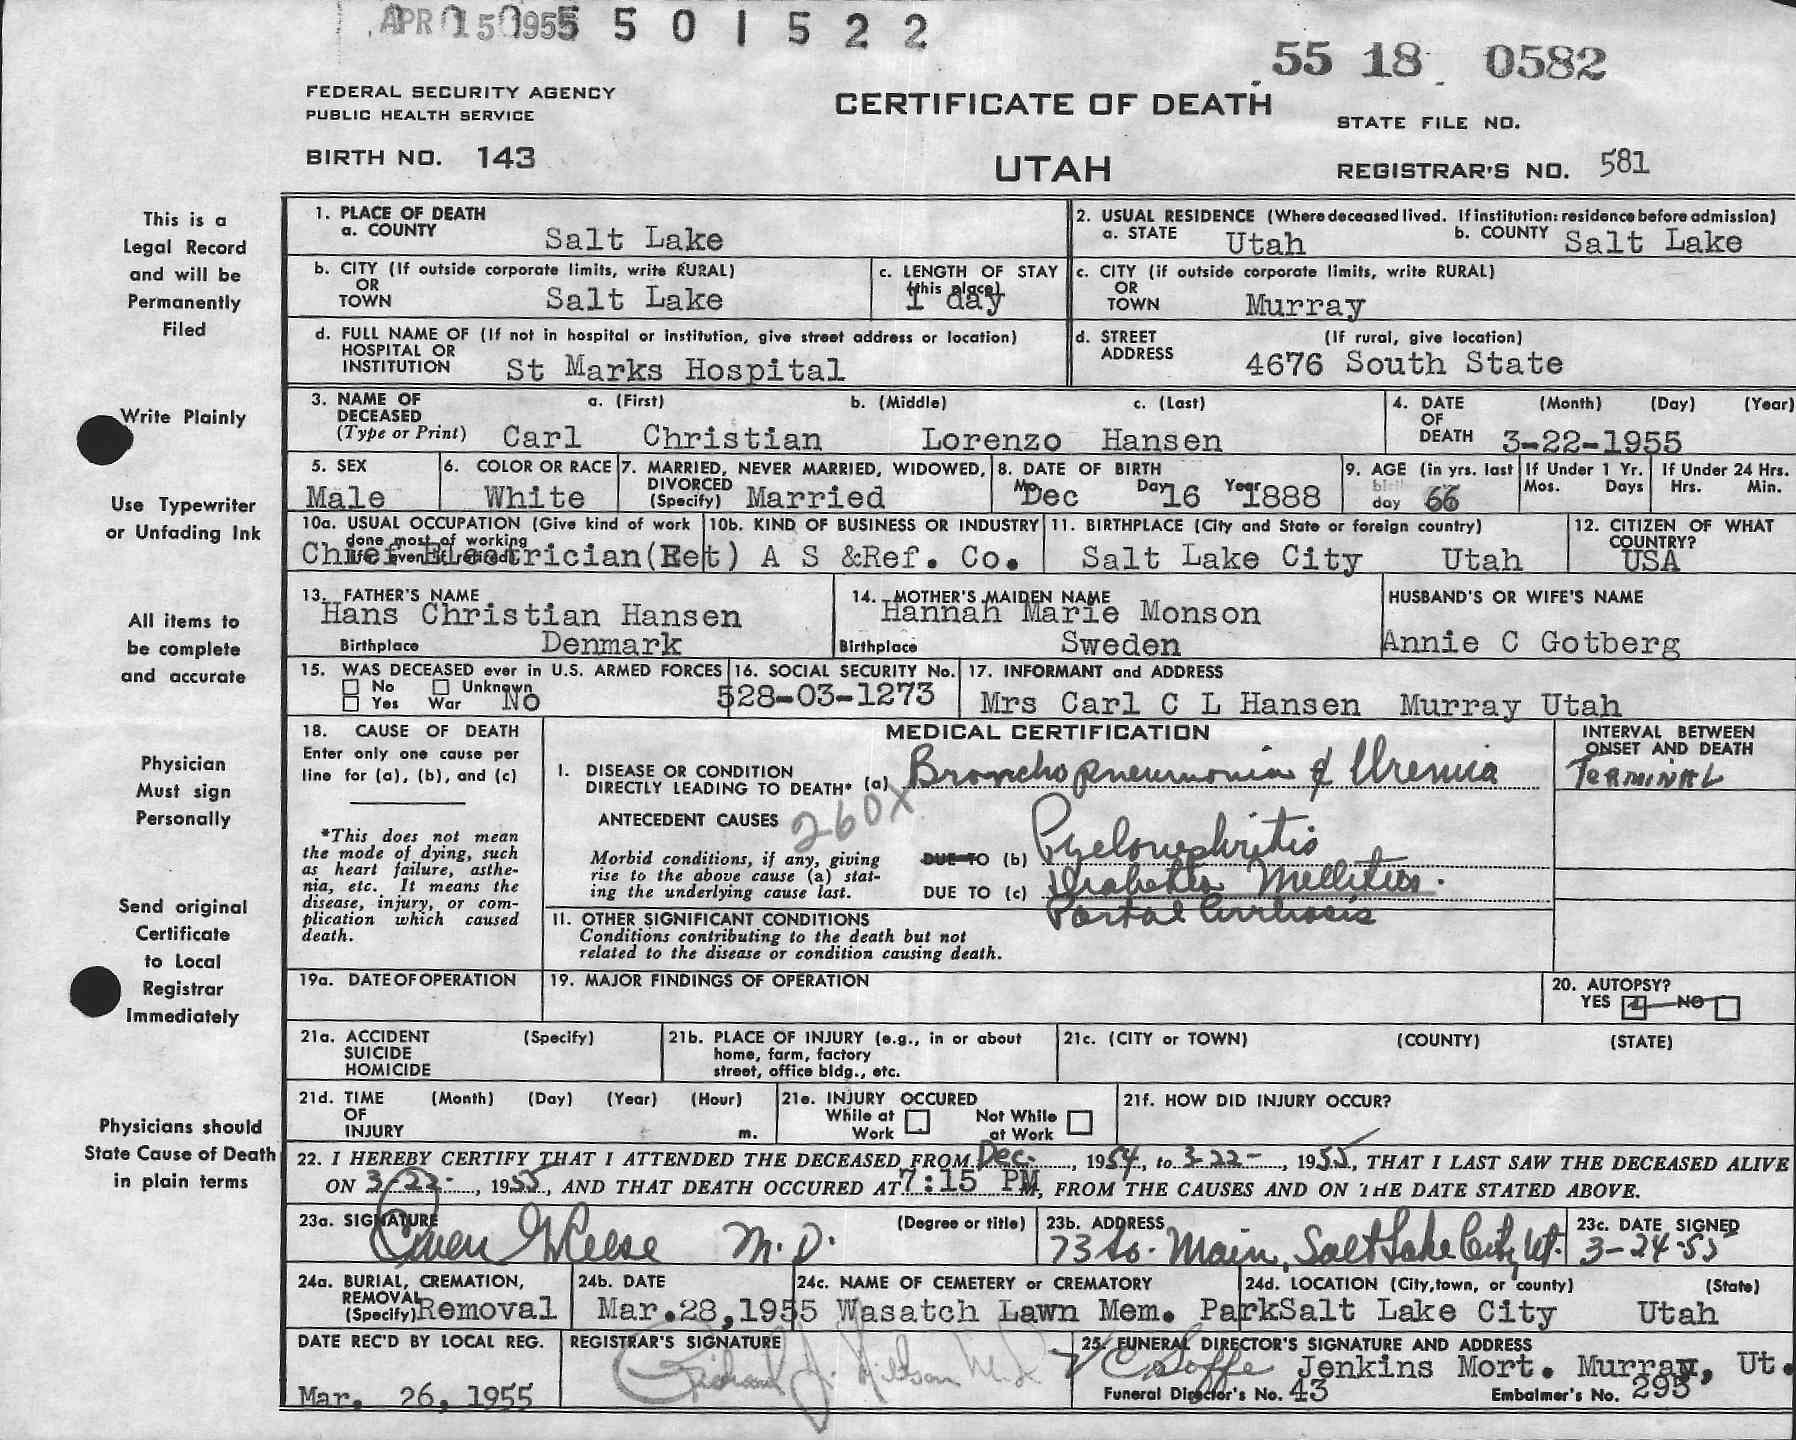 APR 15 1955 5 0 1 5 2 2
55 18 0582
FEDERAL SECURITY AGENCY
PUBLIC HEALTH SERVICE
CERTIFICATE OF DEATH
STATE FILE NO.
BIRTH NO. 143
UTAH
REGISTRAR'S NO. 581
This is a
Legal Record
and will be
Permanently
Filed
Write Plainly
Use Typewriter
or Unfading Ink
All items to
be complete
and accurate
Physician
Must sign
Personally
Send original
Certificate
to Local
Registrar
Immediately
Physicians should
State Cause of Death
in plain terms
1. PLACE OF DEATH
a. COUNTY Salt Lake
2. USUAL RESIDENCE (Where deceased lived. If institution: residence before admission)
a. STATE Utah b. COUNTY Salt Lake
b. CITY (If outside corporate limits, write RURAL)
OR
TOWN Salt Lake
c. LENGTH OF STAY
(this place)
1 day
c. CITY (if outside corporate limits, write RURAL)
OR
TOWN Murray
d. FULL NAME OF (If not in hospital or institution, give street address or location)
HOSPITAL OR
INSTITUTION St Marks Hospital
d. STREET (If rural, give location)
ADDRESS 4676 South State
3. NAME OF a. (First) b. (Middle) c. (Last)
DECEASED
(Type or Print) Carl Christian Lorenzo Hansen
4. DATE (Month) (Day) (Year)
OF
DEATH 3-22-1955
5. SEX
Male
6. COLOR OR RACE
White
7. MARRIED, NEVER MARRIED, WIDOWED,
DIVORCED
(Specify) Married
8. DATE OF BIRTH
Mo Dec Day 16 Year 1888
9. AGE (in yrs. last
birth
day 66
If Under 1 Yr.
Mos. Days
If Under 24 Hrs.
Hrs. Min.
10a. USUAL OCCUPATION (Give kind of work
done most of working
life, even if retired)
Chief Electrician(Ret)
10b. KIND OF BUSINESS OR INDUSTRY
A S &Ref. Co.
11. BIRTHPLACE (City and State or foreign country)
Salt Lake City Utah
12. CITIZEN OF WHAT
COUNTRY?
USA
13. FATHER'S NAME
Hans Christian Hansen
Birthplace Denmark
14. MOTHER'S MAIDEN NAME
Hannah Marie Monson
Birthplace Sweden
HUSBAND'S OR WIFE'S NAME
Annie C Gotberg
15. WAS DECEASED ever in U.S. ARMED FORCES
No Unknown
Yes War No
16. SOCIAL SECURITY No.
528-03-1273
17. INFORMANT and ADDRESS
Mrs Carl C L Hansen Murray Utah
18. CAUSE OF DEATH
Enter only one cause per
line for (a), (b), and (c)
*This does not mean
the mode of dying, such
as heart failure, asthe-
nia, etc. It means the
disease, injury, or com-
plication which caused
death.
MEDICAL CERTIFICATION
INTERVAL BETWEEN
ONSET AND DEATH
I. DISEASE OR CONDITION
DIRECTLY LEADING TO DEATH* (a) Bronchopneumonia & Uremia
TERMINAL
ANTECEDENT CAUSES 260X
Morbid conditions, if any, giving
rise to the above cause (a) stat-
ing the underlying cause last.
DUE TO (b) Pyelonephritis
DUE TO (c) Diabetes Mellitus.
Portal Cirrhosis
II. OTHER SIGNIFICANT CONDITIONS
Conditions contributing to the death but not
related to the disease or condition causing death.
19a. DATE OF OPERATION
19. MAJOR FINDINGS OF OPERATION
20. AUTOPSY?
YES NO
21a. ACCIDENT (Specify)
SUICIDE
HOMICIDE
21b. PLACE OF INJURY (e.g., in or about
home, farm, factory
street, office bldg., etc.
21c. (CITY or TOWN) (COUNTY) (STATE)
21d. TIME (Month) (Day) (Year) (Hour)
OF
INJURY m.
21e. INJURY OCCURED
While at Not While
Work at Work
21f. HOW DID INJURY OCCUR?
22. I HEREBY CERTIFY THAT I ATTENDED THE DECEASED FROM Dec., 1954, to 3-22-, 1955, THAT I LAST SAW THE DECEASED ALIVE
ON 3/22-, 1955, AND THAT DEATH OCCURED AT 7:15 PM, FROM THE CAUSES AND ON THE DATE STATED ABOVE.
23a. SIGNATURE (Degree or title)
Owen G Reese M.D.
23b. ADDRESS
73 So. Main, Salt Lake City, Ut.
23c. DATE SIGNED
3-24-55
24a. BURIAL, CREMATION,
REMOVAL
(Specify) Removal
24b. DATE
Mar.28,1955
24c. NAME OF CEMETERY or CREMATORY
Wasatch Lawn Mem. Park
24d. LOCATION (City, town, or county) (State)
Salt Lake City Utah
DATE REC'D BY LOCAL REG.
Mar. 26, 1955
REGISTRAR'S SIGNATURE
25. FUNERAL DIRECTOR'S SIGNATURE AND ADDRESS
Jenkins Mort. Murray, Ut.
Funeral Director's No. 43 Embalmer's No. 295